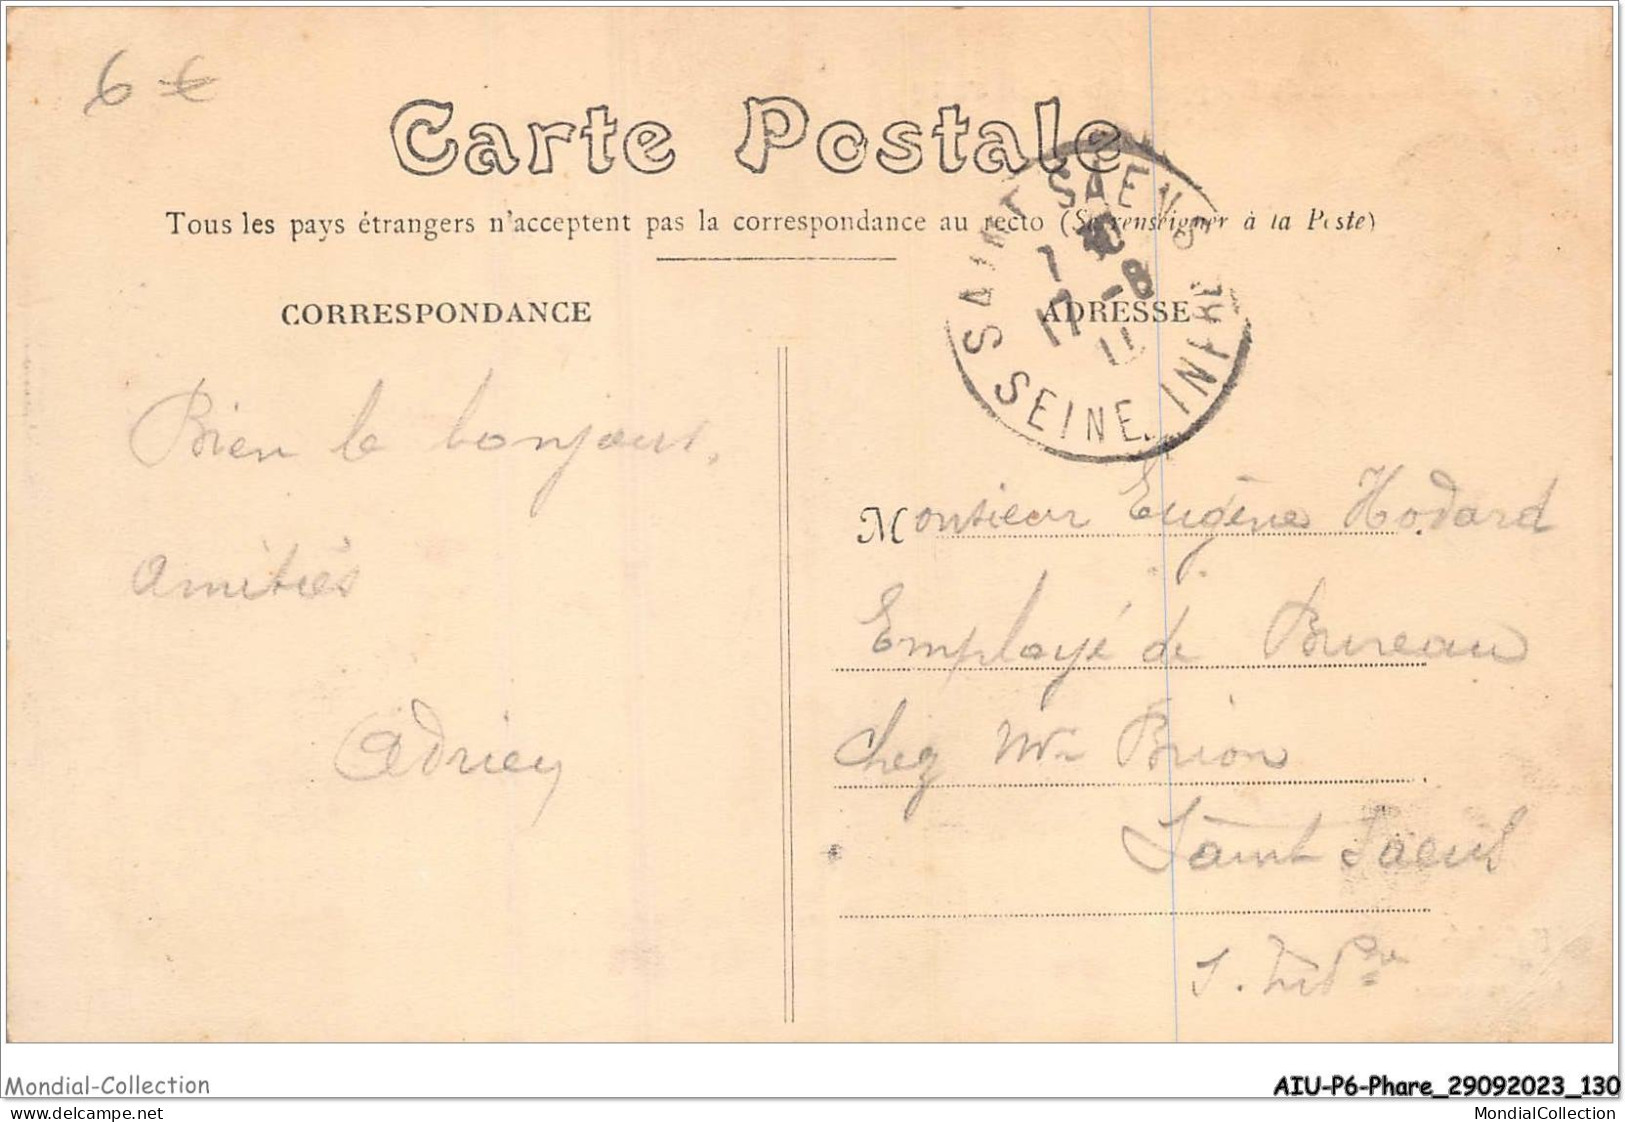 6 €
Carte Postale
Tous les pays étrangers n'acceptent pas la correspondance au recto (Se renseigner à la Poste)
SAINT SAENS
7 30
17 -8
11
SEINE INFRE
CORRESPONDANCE
ADRESSE
Bien le bonjour.
Amitiés
Adrien
Monsieur Eugène Hodard
Employé de Bureau
chez Mr Brion
Saint Saens
S. Infre
Mondial-Collection
AIU-P6-Phare_29092023_130
www.delcampe.net
MondialCollection